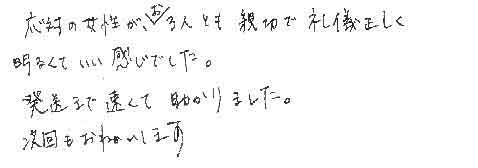 応対の女性が、お二人とも親切で礼儀正しく
明るくていい感じでした。
発送まで速くて助かりました。
次回もおねがいします